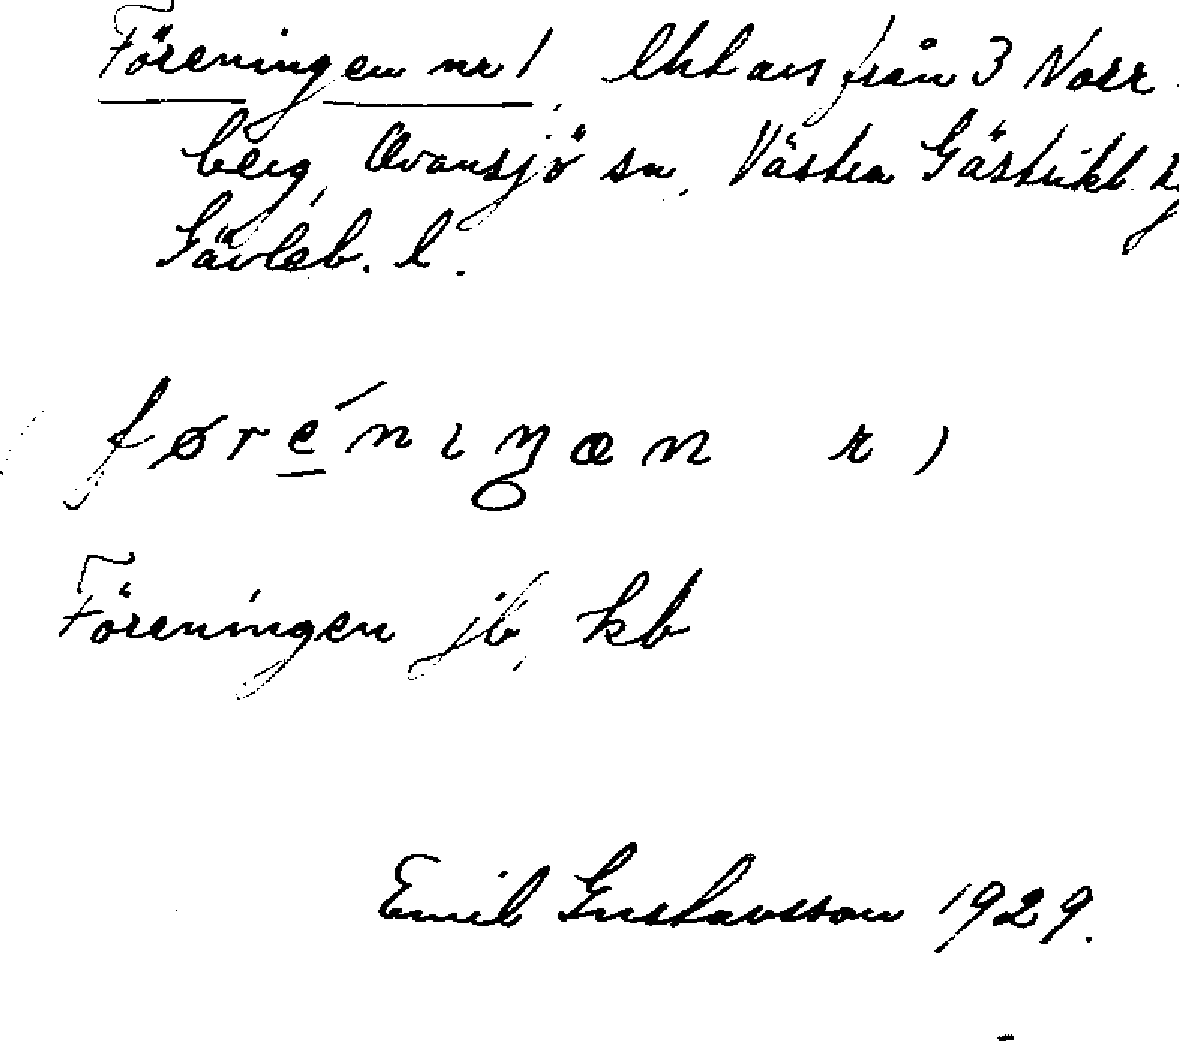 Föreningen nr 1, Utbars från 3 Norr-
berg, Ovansjö sn, Västra Gästrikl. t
Gävleb. l.
førénıŋæn r)
Föreningen jb, kb
Emil Gustavsson 1929.